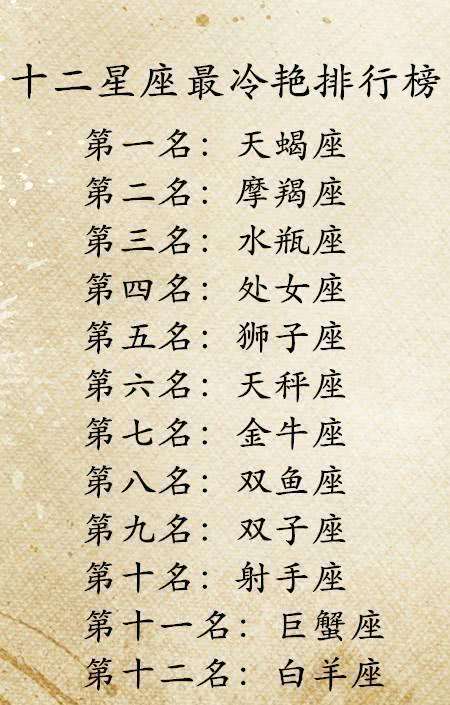 十二星座最冷艳排行榜
第一名：天蝎座
第二名：摩羯座
第三名：水瓶座
第四名：处女座
第五名：狮子座
第六名：天秤座
第七名：金牛座
第八名：双鱼座
第九名：双子座
第十名：射手座
第十一名：巨蟹座
第十二名：白羊座